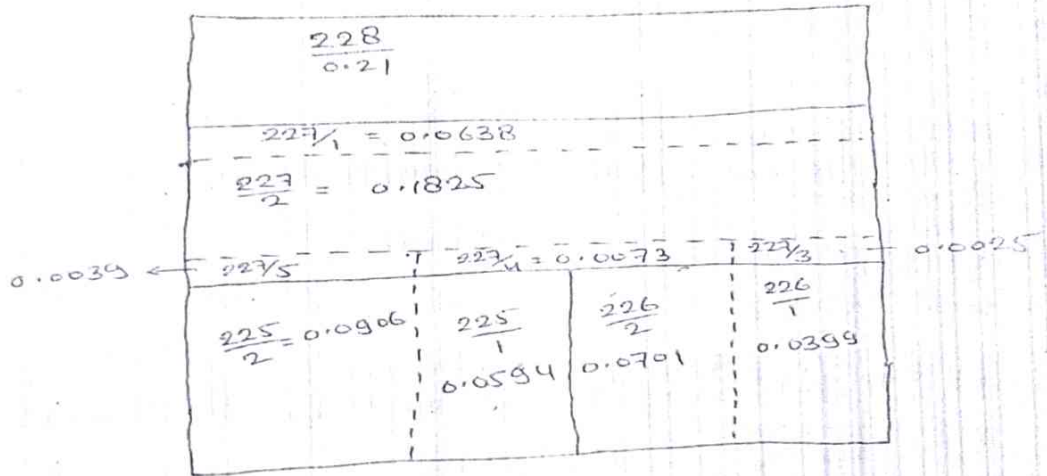 228
0.21
227/1 = 0.0638
227/2 = 0.1825
0.0039
227/5
227/4 = 0.0073
227/3
0.0025
225/2 = 0.0906
225/1
0.0594
226/2
0.0701
226/1
0.0399